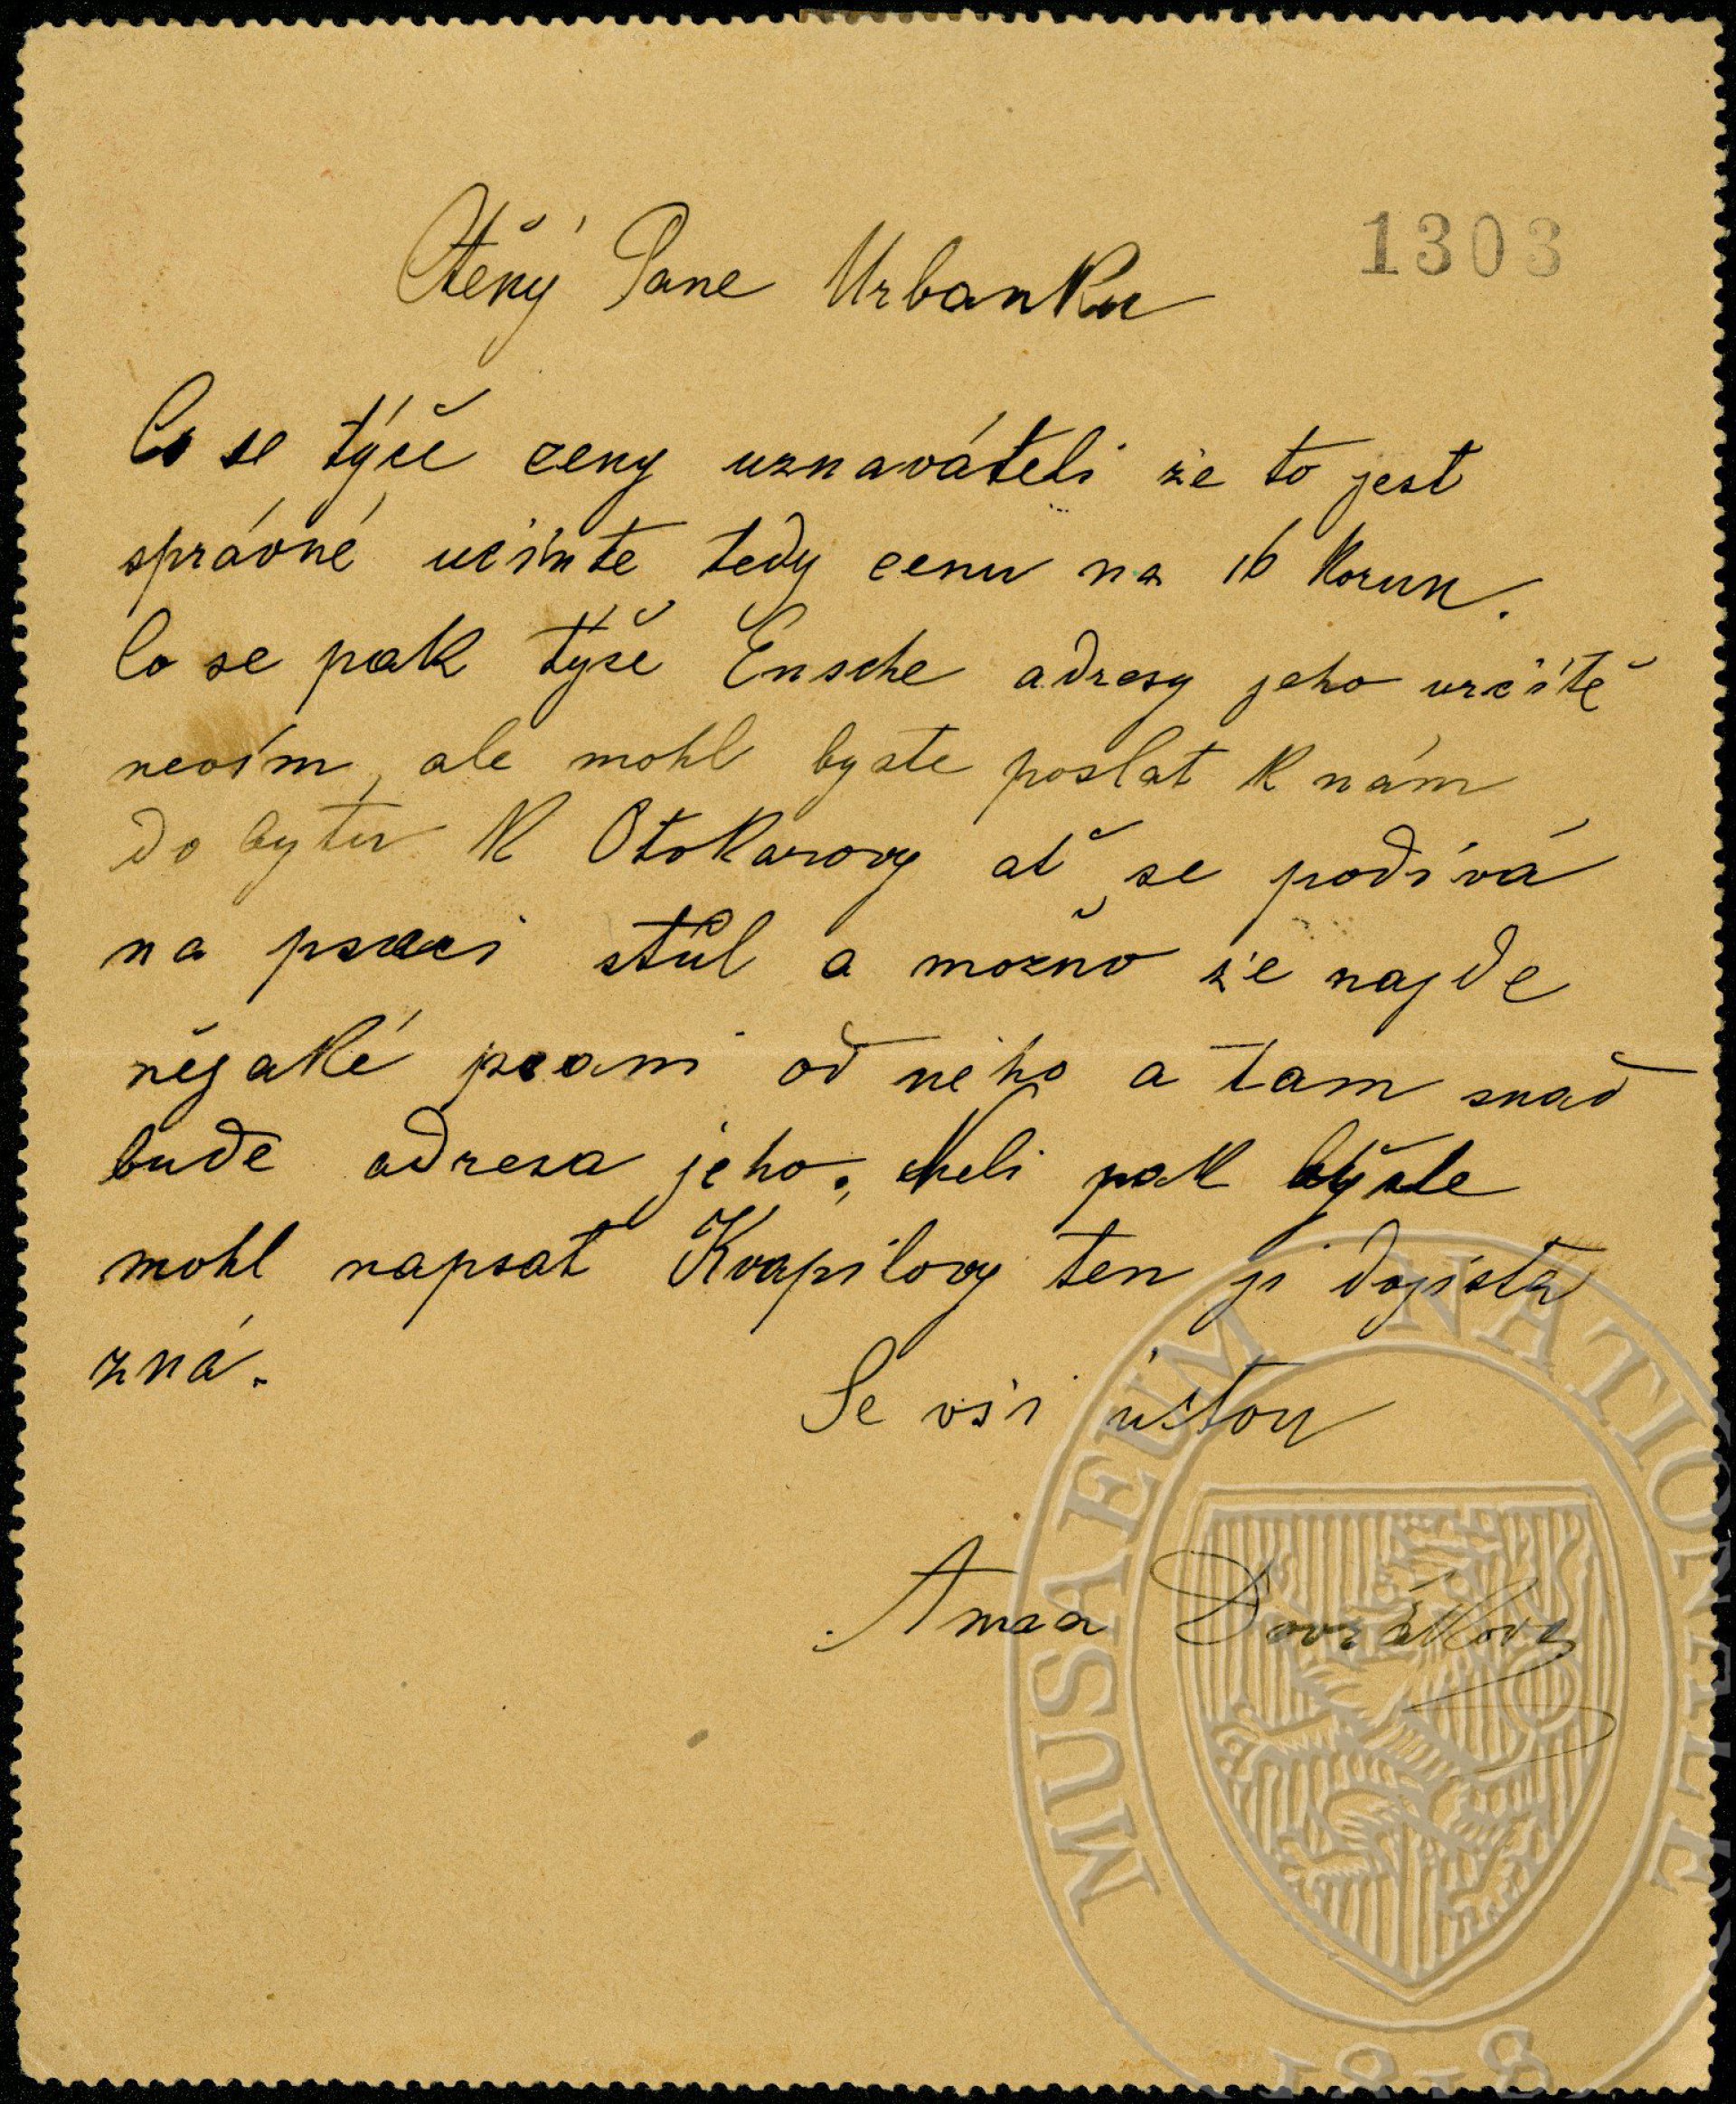 1303
Ctěný Pane Urbanku
Co se týče ceny uznaváteli že to jest
správné učinte tedy cenu na 16 Korun.
Co se pak týče Ensche adresy jeho určitě
nevím, ale mohl byste poslat k nám
do bytu k Otokarovy ať se podívá
na psací stůl a možno že najde
nějaké psani od něho a tam snad
bude adresa jeho. neli pak byste
mohl napsat Kvapilovy ten ji dojista
zná.
Se vší úctou
Anna Dvořáková
MUSAEUM NATIONALE
1818